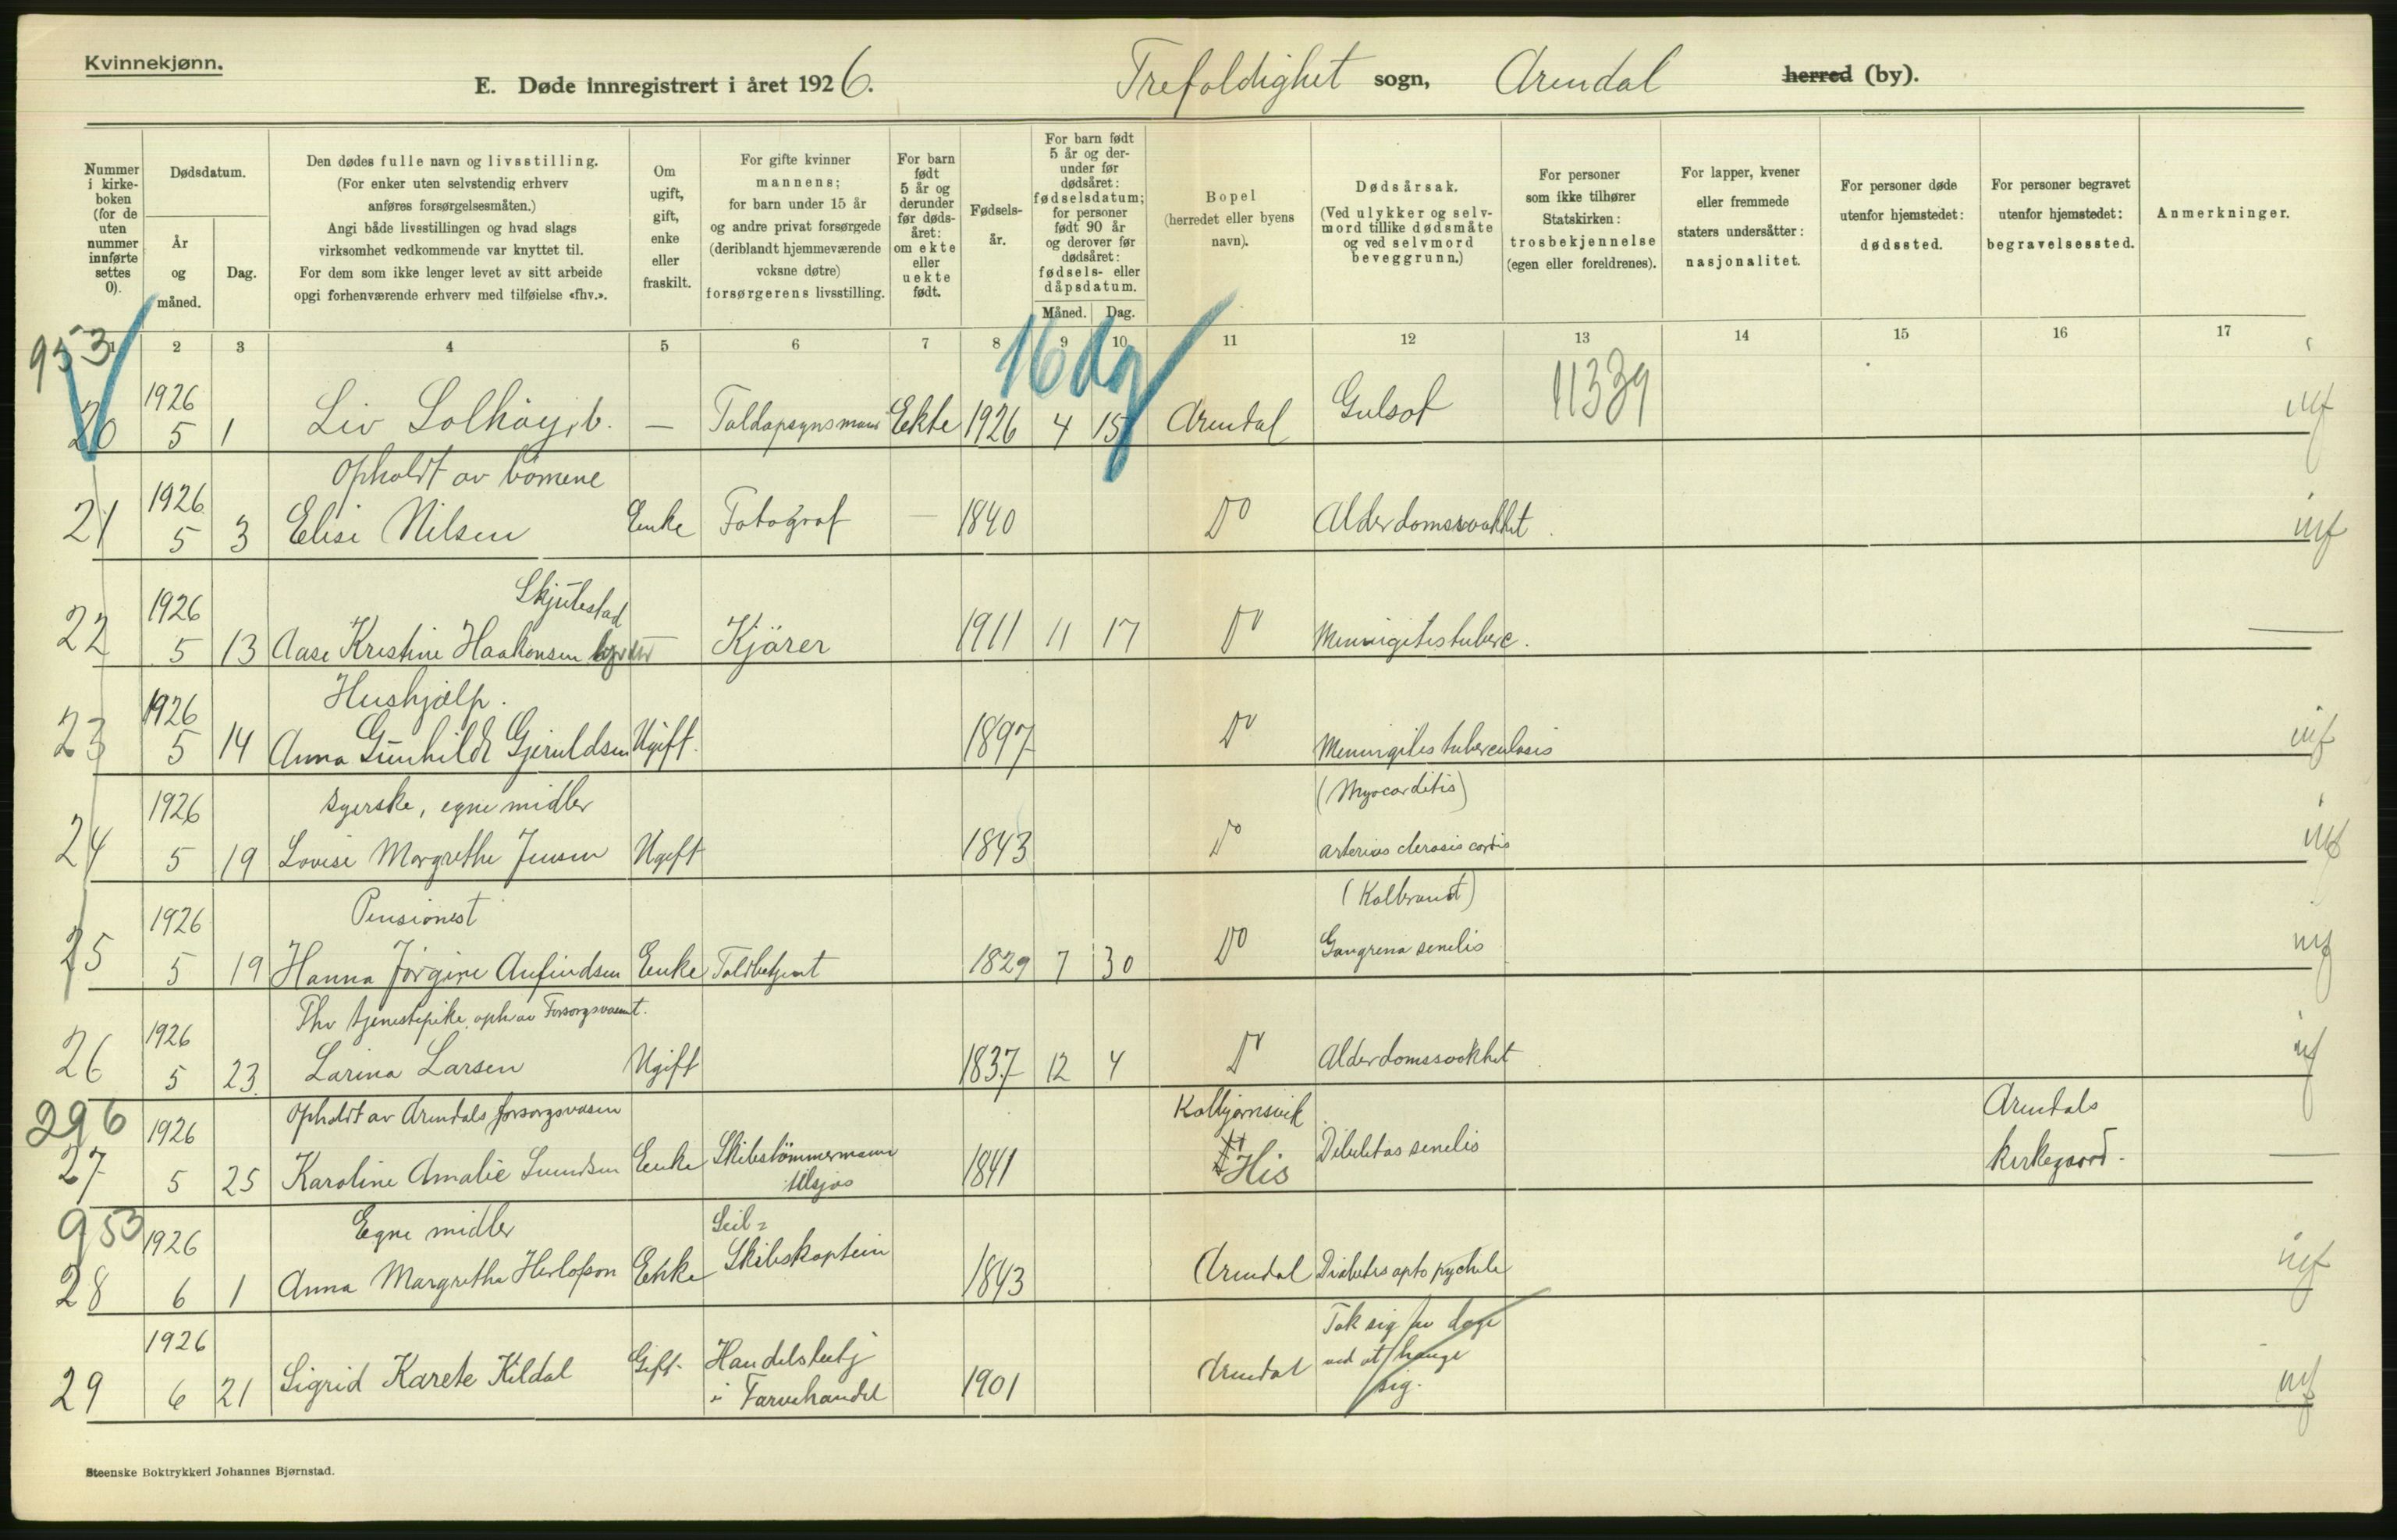 Kvinnekjønn.
E. Døde innregistrert i året 1926. Trefoldighet sogn, Arendal herred (by).
Nummer i kirkeboken (for de uten nummer innførte settes 0).
Dødsdatum.
År og måned.
Dag.
Den dødes fulle navn og livsstilling.
(For enker uten selvstendig erhverv anføres forsørgelsesmåten.)
Angi både livsstillingen og hvad slags virksomhet vedkommende var knyttet til.
For dem som ikke lenger levet av sitt arbeide opgi forhenværende erhverv med tilføielse «fhv.».
Om ugift, gift, enke eller fraskilt.
For gifte kvinner mannens; for barn under 15 år og andre privat forsørgede (deriblandt hjemmeværende voksne døtre) forsørgerens livsstilling.
For barn født 5 år og derunder før dødsåret: om ekte eller uekte født.
Fødselsår.
For barn født 5 år og derunder før dødsåret: fødselsdatum; for personer født 90 år og derover før dødsåret: fødsels- eller dåpsdatum.
Måned. Dag.
Bopel (herredet eller byens navn).
Dødsårsak. (Ved ulykker og selvmord tillike dødsmåte og ved selvmord beveggrunn.)
For personer som ikke tilhører Statskirken: trosbekjennelse (egen eller foreldrenes).
For lapper, kvener eller fremmede staters undersåtter: nasjonalitet.
For personer døde utenfor hjemstedet: dødssted.
For personer begravet utenfor hjemstedet: begravelsessted.
Anmerkninger.
1 2 3 4 5 6 7 8 9 10 11 12 13 14 15 16 17
953
16 dg
20 1926 5 1 Liv Solhöy, b. — Toldopsynsmann Ekte 1926 4 15 Arendal Gulsot 11339
Opholdt av börnene
21 1926 5 3 Elise Nilsen Enke Fotograf — 1840 Do Alderdomssvakhet
Skjulestad
22 1926 5 13 Aase Kristine Haakonsen — Kjörer 1911 11 17 Do Meningitis tuberc.
Hushjælp.
23 1926 5 14 Anna Gunhild Gjeruldsen Ugift. 1897 Do Meningitis tuberculosis
Syerske, egne midler (Myocarditis)
24 1926 5 19 Lovise Margrethe Jensen Ugift 1843 Do arteriosclerosis cordis
Pensionist (Kolbrand)
25 1926 5 19 Hanna Jörgine Anfindsen Enke Toldbetjent 1829 7 30 Do Gangrena senilis
Fhv tjenestepike, oph av Forsorgsvesent.
26 1926 5 23 Larina Larsen Ugift 1837 12 4 Do Alderdomssvakhet
296 Opholdt av Arendals forsorgsvesen Kolbjørnsvik Arendals
27 1926 5 25 Karoline Amalie Enke Skibstömmermann tilsjøs 1841 His Debilitas senilis kirkegaard. —
953 Egne midler Seil=
28 1926 6 1 Anna Margrethe Herlofson Enke Skibskaptein 1843 Arendal Diabetes
Tok sig av dage
29 1926 6 21 Sigrid Karete Kildal Gift. Handelsbetj i Farvehandel 1901 Arendal ved at hænge sig.
Steenske Boktrykkeri Johannes Bjørnstad.